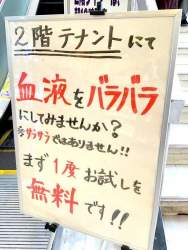 2階テナントにて
血液をバラバラ
にしてみませんか?
※サラサラではありません!!
まず1度お試しを
無料です!!